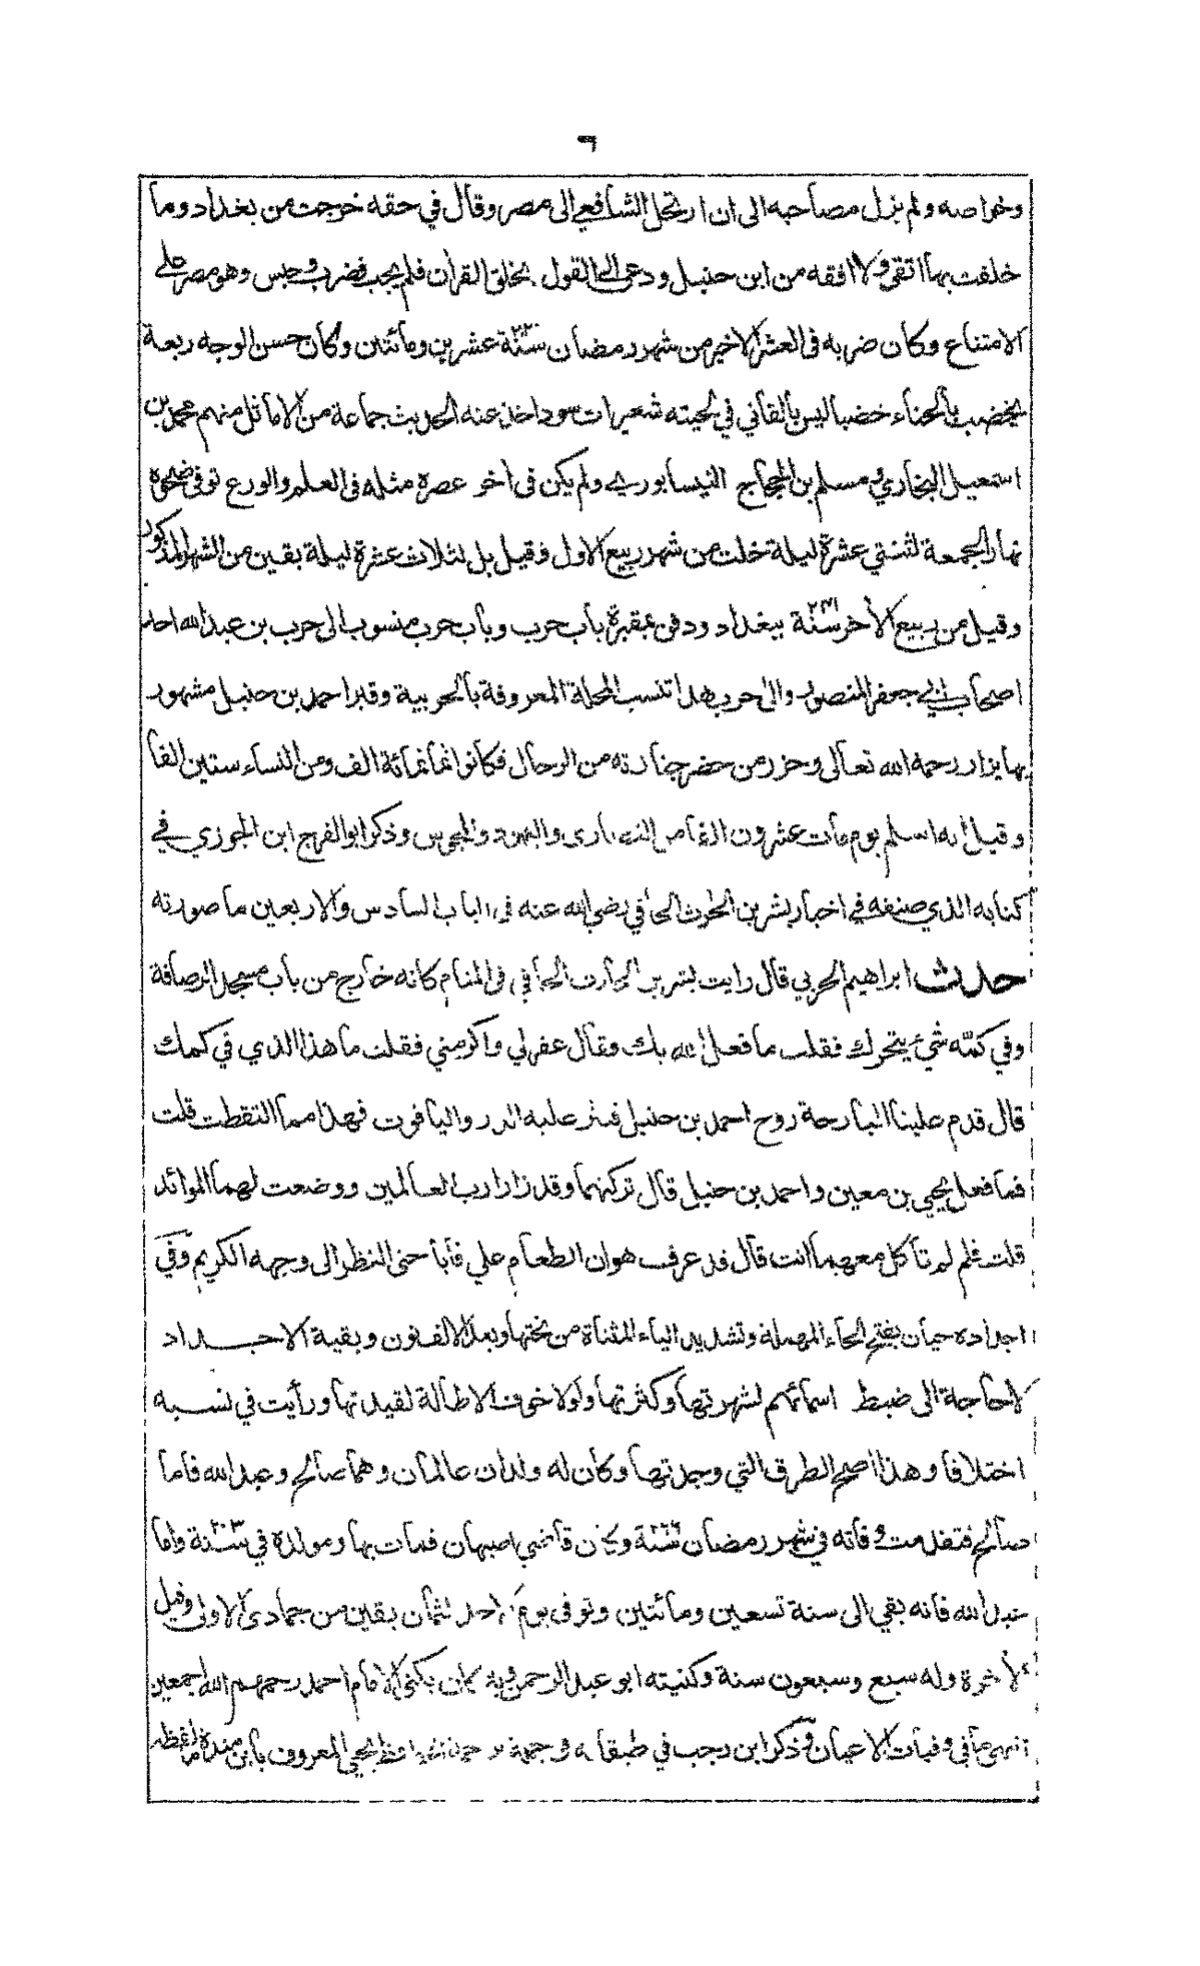 ٦
وخواصه ولم يزل مصاحبه الى ان ارتحل الشافعي الى مصر وقال في حقه خرجت من بغداد وما
خلفت بها اتقى ولا افقه من ابن حنبل ودعي الى القول بخلق القرأن فلم يجب فضرب وحبس وهو مصر على
الامتناع وكان ضربه فى العشر الاخير من شهر رمضان سنة ٢٢٠ عشرين ومائتين وكان حسن الوجه ربعة
يخضب بالحناء خضبا ليس بالقاني في لحيته شعيرات سود اخذ عنه الحديث جماعة من الاماثل منهم محمد بن
اسمعيل البخاري ومسلم بن الحجاج النيسابوري ولم يكن فى أخر عصره مثله فى العلم والورع توفى ضحوة
نهار الجمعة لثنتي عشرة ليلة خلت من شهر ربيع الاول وقيل بل لثلاث عشرة ليلة بقين من الشهر المذكور
وقيل من ربيع الأخر سنة ٢٤١ ببغداد ودفن بمقبرة باب حرب وباب حرب منسوب الى حرب بن عبد الله احد
اصحاب ابي جعفر المنصور والى حرب هذا تنسب المحلة المعروفة بالحربية وقبر احمد بن حنبل مشهور
بها يزار رحمه الله تعالى وحزر من حضر جنازته من الرجال فكانوا ثمانمائة الف ومن النساء ستين الفا
وقيل انه اسلم يوم مات عشرون الفا من النصارى واليهود والمجوس وذكر ابو الفرج ابن الجوزي في
كتابه الذي صنفه في اخبار بشر بن الحرث الحافي رضي الله عنه فى الباب السادس والاربعين ما صورته
حدث ابراهيم الحربي قال رايت بشر بن الحارث الحافي فى المنام كانه خارج من باب مسجد الرصافة
وفي كمّه شيء يتحرك فقلت ما فعل الله بك وقال غفر لي واكرمني فقلت ما هذا الذي في كمك
قال قدم علينا البارحة روح احمد بن حنبل فنثر عليه الدر والياقوت فهذا مما التقطت قلت
فما فعل يحيى بن معين واحمد بن حنبل قال تركتهما وقد زارا رب العالمين ووضعت لهما الموائد
قلت فلم لم تأكل معهما انت قال قد عرف هوان الطعام علي فأبا حنى النظر الى وجهه الكريم وفي
اجداده حيان بفتح الحاء المهملة وتشديد الياء المثناة من تحتها وبعد الالف نون وبقية الاجداد
لا حاجة الى ضبط اسمائهم لشهرتها وكثرتها ولولا خوف الاطالة لقيدتها ورأيت في نسبه
اختلافا وهذا اصح الطرق التي وجدتها وكان له ولدان عالمان وهما صالح وعبد الله فاما
صالح فتقدمت وفاته في شهر رمضان سنة ٢٦٦ وكان قاضي اصبهان فمات بها ومولده في سنة ٢٠٣ واما
عبد الله فانه بقي الى سنة تسعين ومائتين وتوفى يوم الاحد لثمان بقين من جمادى الاولى وقيل
الأخرة وله سبع وسبعون سنة وكنيته ابو عبد الرحمن وبه كان يكنى الامام احمد رحمهم الله اجمعين
انتهى ما فى وفيات الاعيان وذكر ابن رجب في طبقاته يحيى المعروف بابن مندة ما لفظه